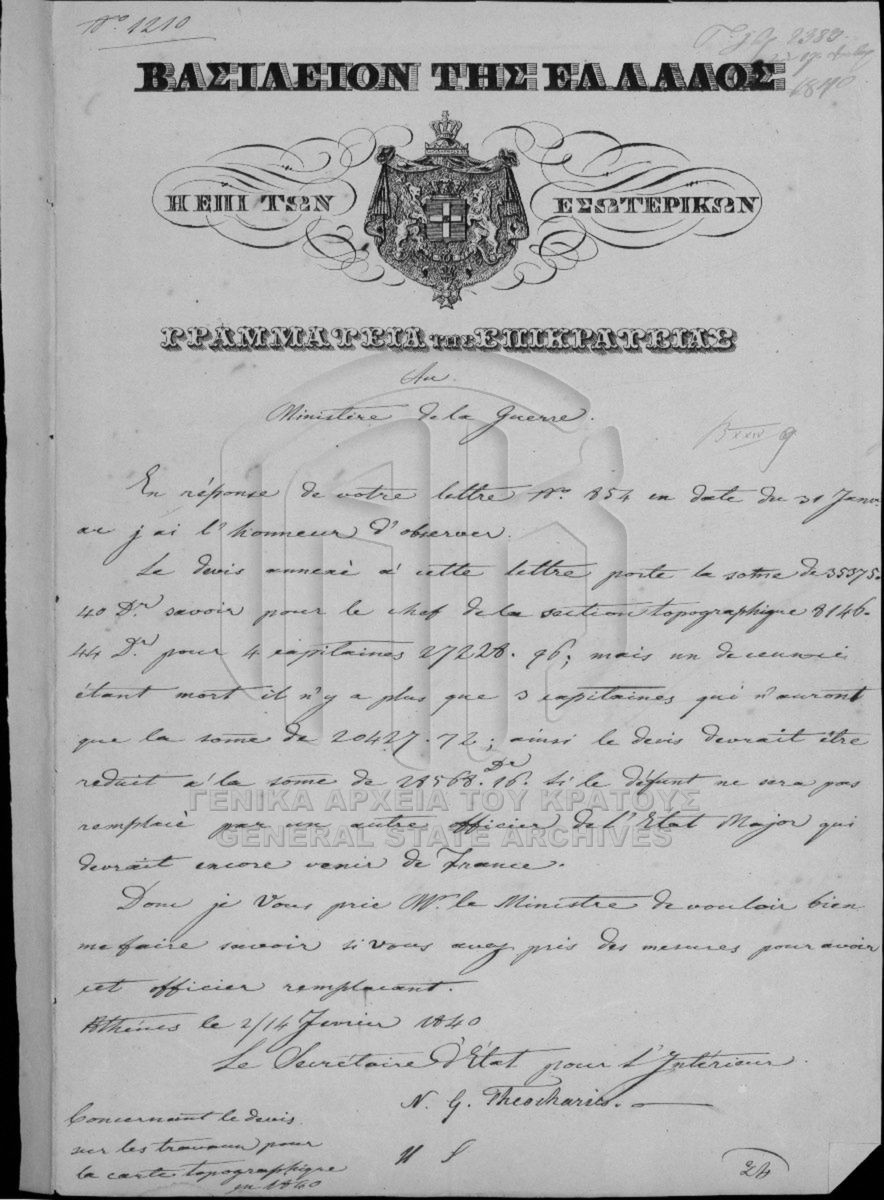 No. 1210
2383
1840
ΒΑΣΙΛΕΙΟΝ ΤΗΣ ΕΛΛΑΔΟΣ
Η ΕΠΙ ΤΩΝ ΕΣΩΤΕΡΙΚΩΝ
ΓΡΑΜΜΑΤΕΙΑ ΤΗΣ ΕΠΙΚΡΑΤΕΙΑΣ
Au
Ministère de la Guerre.
B XXIV
En réponse de votre lettre No. 854 en date du 31 Janv.
ar j'ai l'honneur d'observer.
Le devis annexé à cette lettre porte la some de 35375.
40 Dr. savoir pour le chef de la section topographique 8146.
44 Dr. pour 4 capitaines 27228. 96; mais un de ceux-ci
étant mort il n'y a plus que 3 capitaines qui n'auront
que la some de 20427.72; ainsi le devis devrait être
reduit à la some de 28568. Dr 16. si le défunt ne sera pas
remplacé par un autre officier de l'Etat Major qui
devrait encore venir de France.
Donc je Vous prie Mr. le Ministre de vouloir bien
me faire savoir si vous avez pris des mesures pour avoir
cet officier remplacant.
Athénes le 2/14 Fevrier 1840
Le Secrétaire d'État pour l'Intérieur.
N. G. Theocharis.
Concernant le devis
sur les travaux pour
la carte topographique
en 1840
24
ΓΕΝΙΚΑ ΑΡΧΕΙΑ ΤΟΥ ΚΡΑΤΟΥΣ
GENERAL STATE ARCHIVES